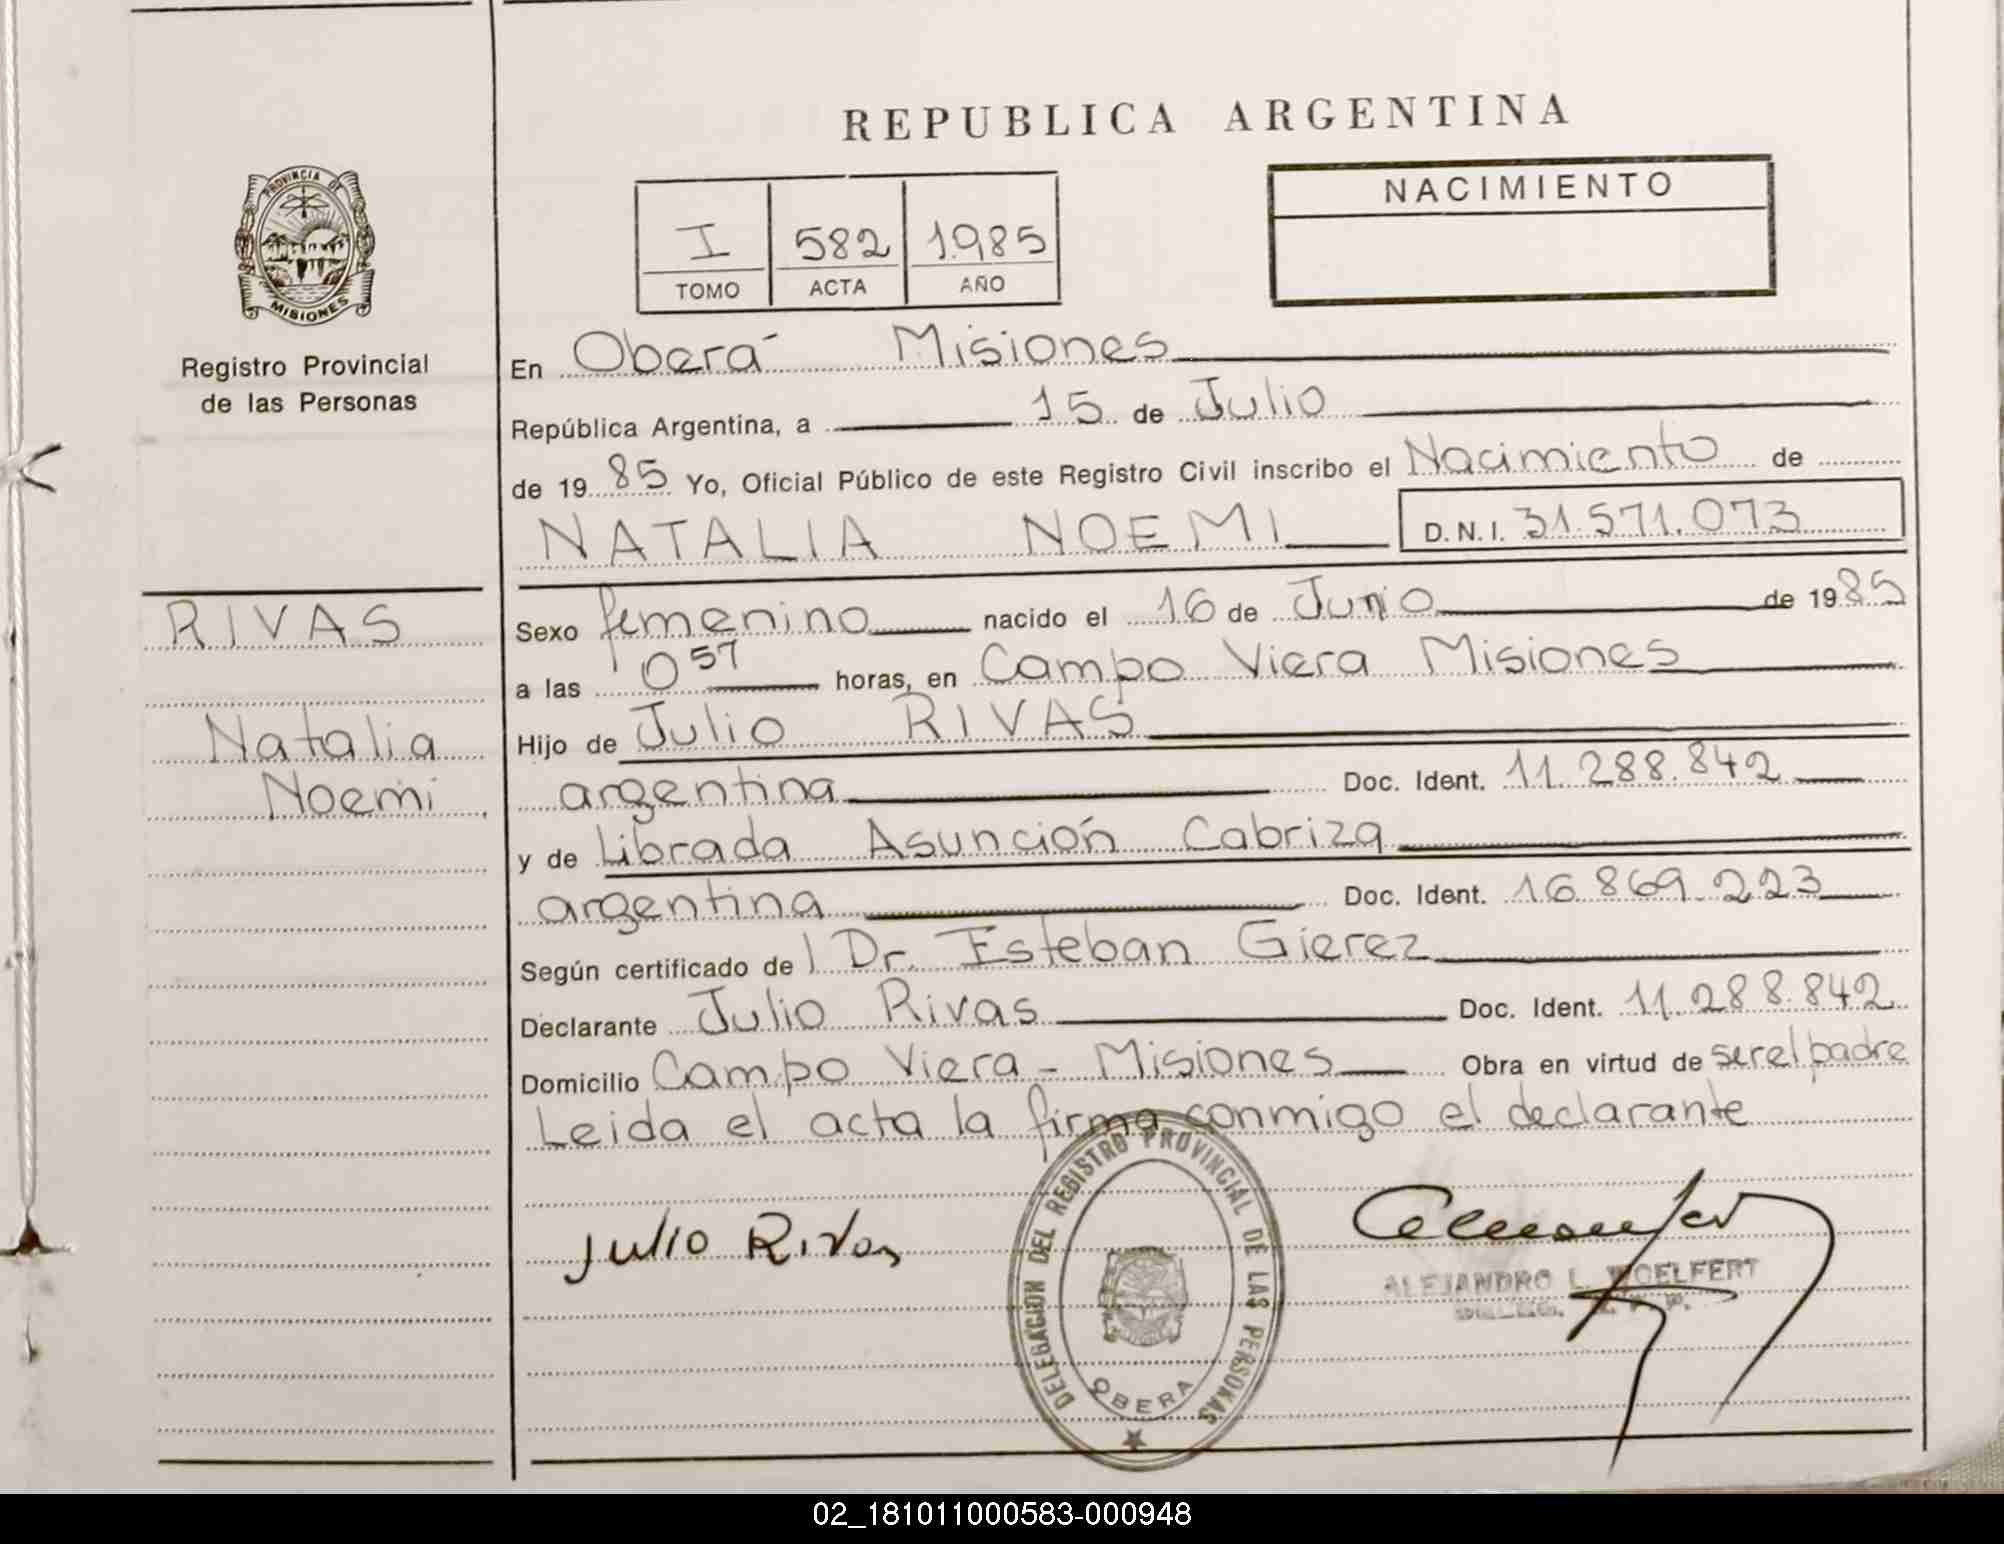 REPUBLICA ARGENTINA
PROVINCIA DE
MISIONES
Registro Provincial
de las Personas
I 582 1.985
TOMO ACTA AÑO
NACIMIENTO
En Oberá Misiones
República Argentina, a 15 de Julio
de 1985 Yo, Oficial Público de este Registro Civil inscribo el Nacimiento de
NATALIA NOEMI D.N.I. 31.571.073
RIVAS
Natalia
Noemi
Sexo femenino nacido el 16 de Junio de 1985
a las 0 57 horas, en Campo Viera Misiones
Hijo de Julio RIVAS
argentina Doc. Ident. 11.288.842
y de Librada Asunción Cabriza
argentina Doc. Ident. 16.869.223
Según certificado de l Dr. Esteban Gierez
Declarante Julio Rivas Doc. Ident. 11.288.842
Domicilio Campo Viera - Misiones Obra en virtud de ser el padre
Leida el acta la firma conmigo el declarante
Julio Rivas
DELEGACION DEL REGISTRO PROVINCIAL DE LAS PERSONAS
OBERA
ALEJANDRO L. WOELFERT
02_181011000583-000948